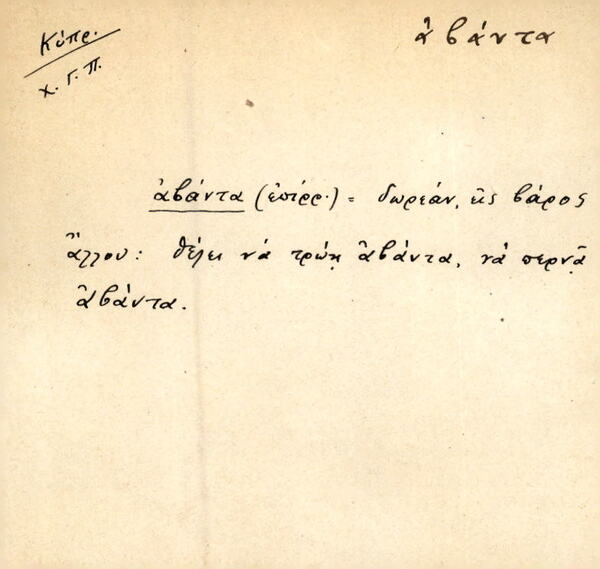 Κύπρ.
Χ. Γ. Π.
ἀβάντα
ἀβάντα (ἐπίρρ.) = δωρεάν, εἰς βάρος
ἄλλου: θέλει νὰ τρώῃ ἀβάντα, νὰ περνᾷ
ἀβάντα.